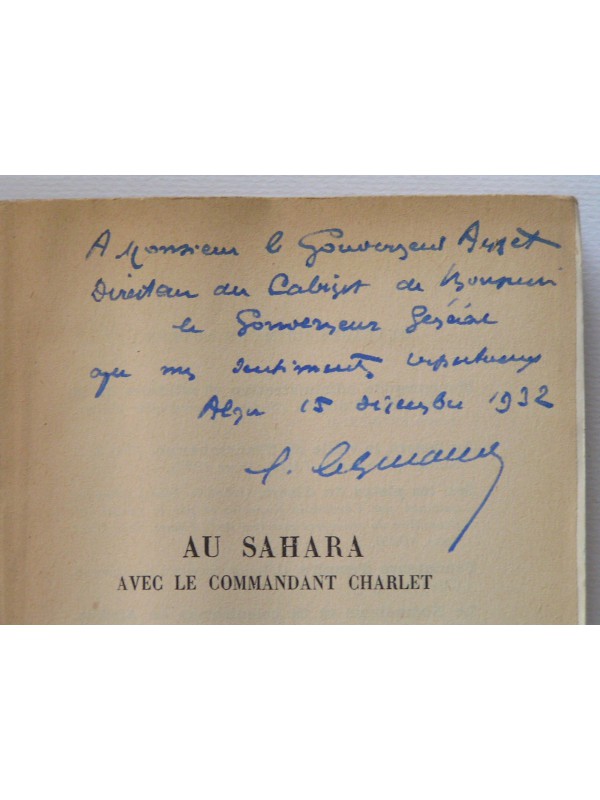 A Monsieur le Gouverneur
Directeur du Cabinet de Monsieur
le Gouverneur Général
avec mes sentiments respectueux
Alger 15 décembre 1932
AU SAHARA
AVEC LE COMMANDANT CHARLET